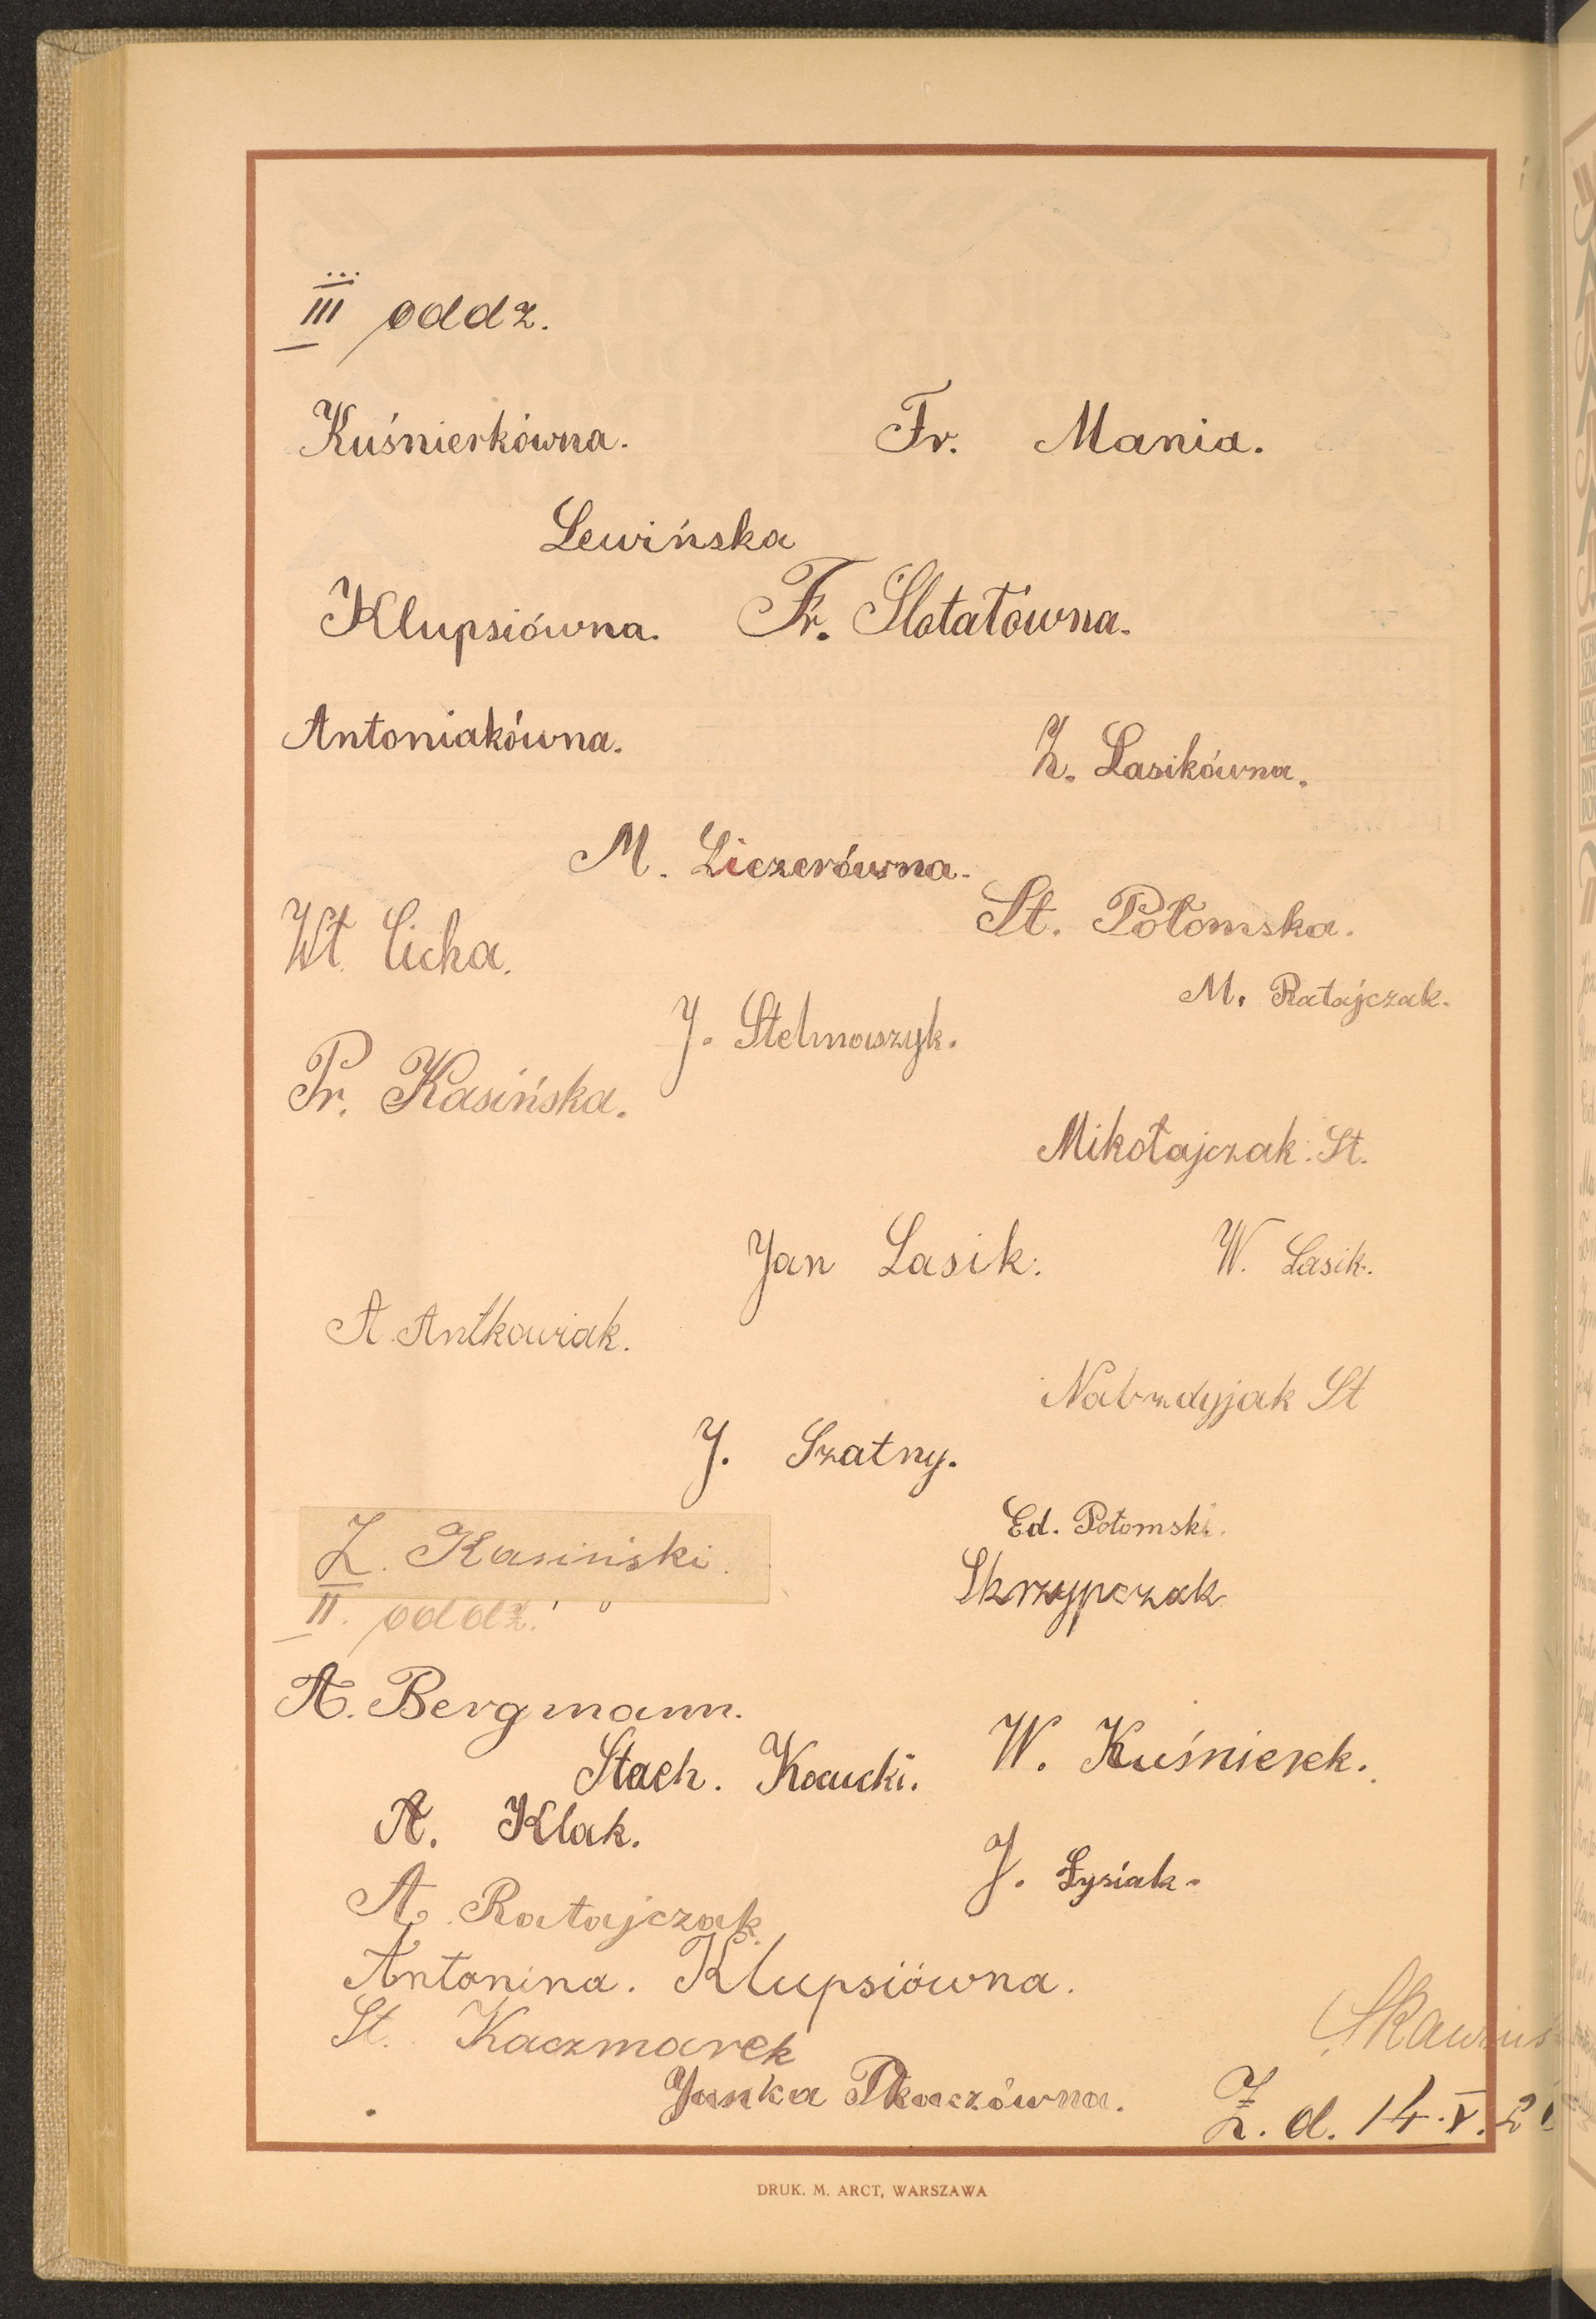 III oddz.
Kuśnierkówna. Fr. Mania.
Lewińska
Klupsiówna. Fr. Slotałówna.
Antoniakówna.
Z. Lasikówna.
M. Liczerówna.
St. Połomska.
Wł. Cicha.
M. Ratajczak.
J. Stelmaszyk.
Pr. Kasińska.
Mikołajczak. St.
Jan Lasik. W. Lasik.
A. Antkowiak.
Nabzdyjak St
J. Szatny.
Ed. Połomski.
Z. Kasiński.
Skrzypczak
II. oddz.
A. Bergmann.
W. Kuśnierek.
Stach. Kocucki.
A. Klak.
J. Łysiak.
A. Ratajczak
Antonina. Klupsiówna.
St. Kaczmarek
Janka Tkaczówna.
Z. d. 14.V.
DRUK. M. ARCT, WARSZAWA